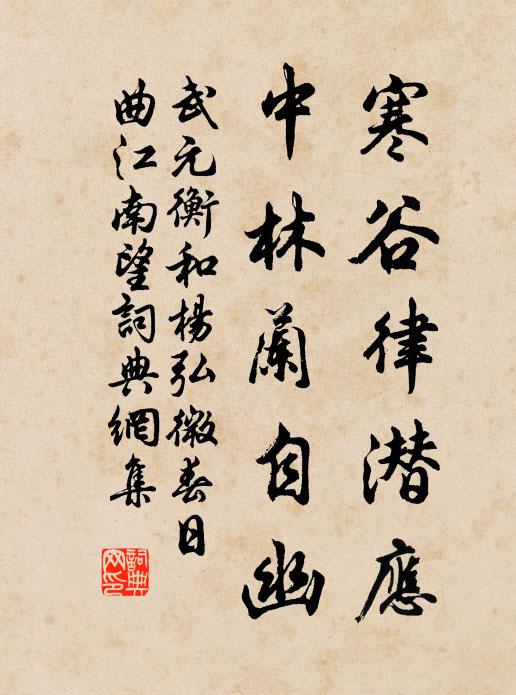 寒谷律潜應
中林蘭自幽
武元衡和楊弘微春日
曲江南望詞典網集
詞典
网印